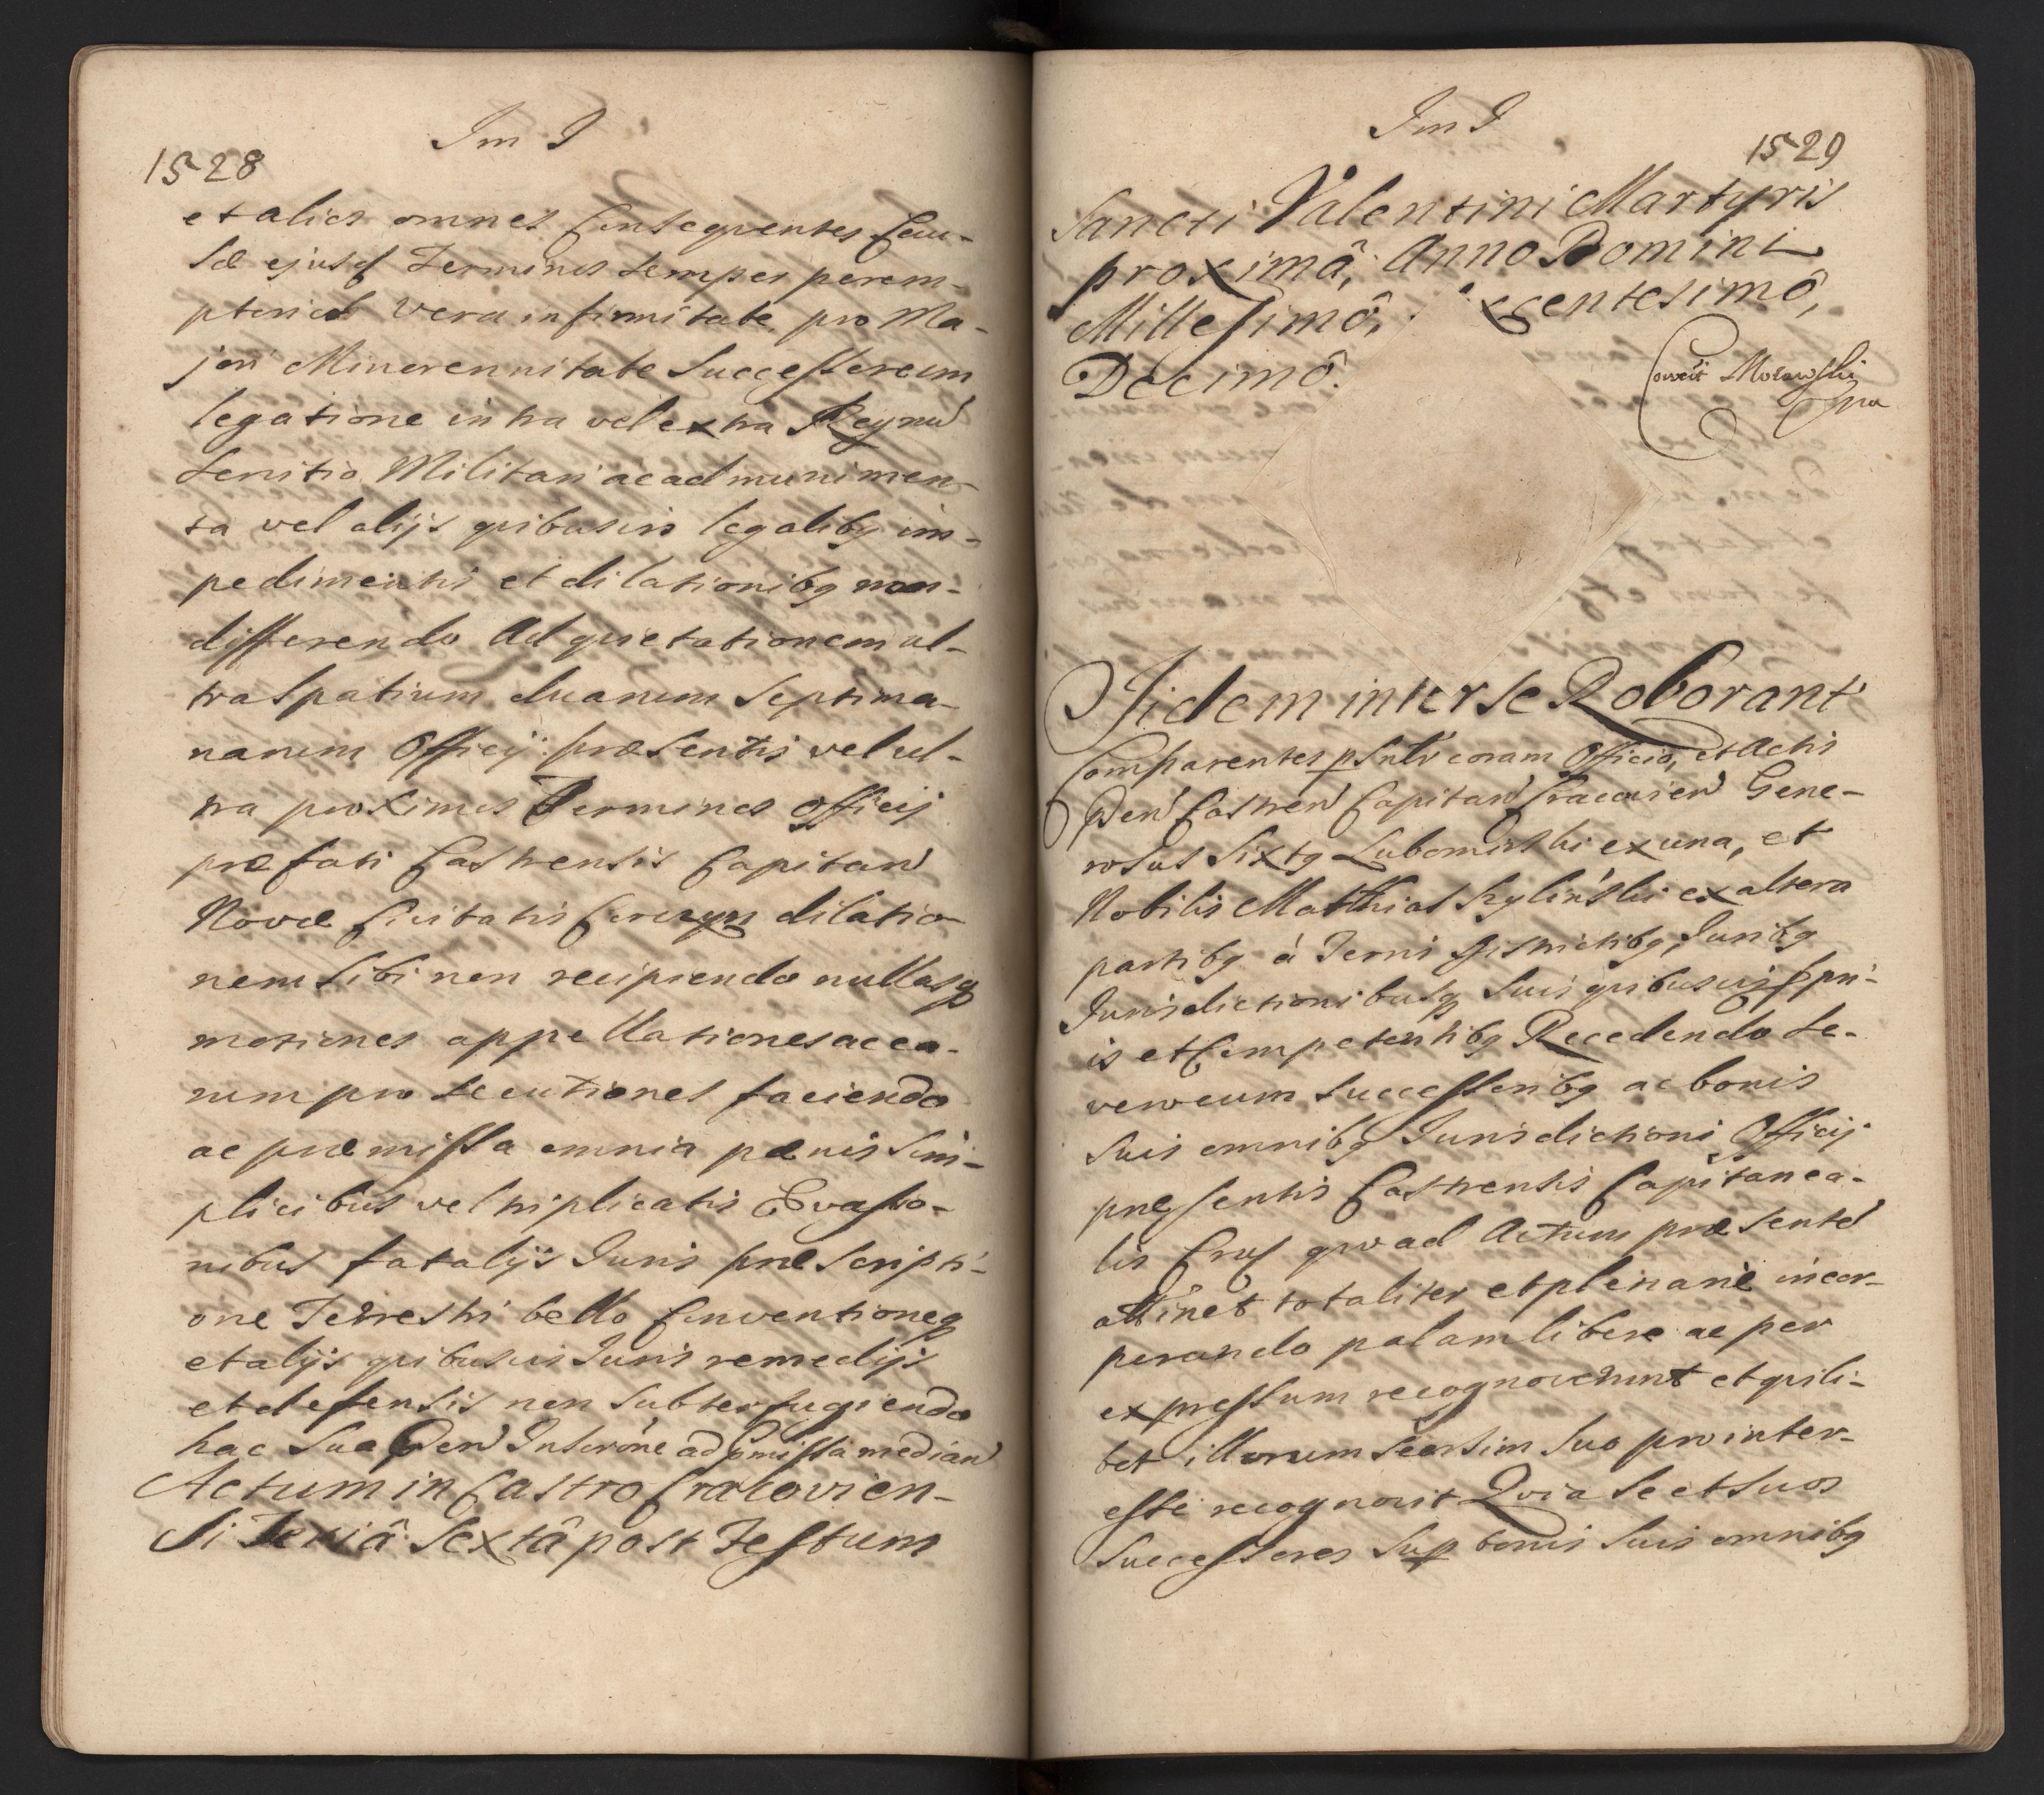 Im I
1528
et alios omnes Consequentes Cau-
sæ ejusq Terminos semper perem-
ptorios Vera infirmitate pro Ma-
jori Minorennitate Successorum
legatione intra vel extra Regnu
Servitio Militari ac ad munimen-
ta vel alijs quibusvis legalibq im-
pedimentis et dilationibq non
differendo Ad quietationem ul-
tra Spatium duarum Septima-
narum Officij præsentis vel ul-
tra proximos Terminos Officij
præfati Castrensis Capitan
Novæ Civitatis Corczyn dilatio-
nem sibi non recipiendo nullasq
motiones appellationes ac ea-
rum prosecutiones faciendo
ac præmissa omnia pænis Sim-
plicibus vel triplicatis Evasio-
nibus fatalijs Juris præscripti-
one Terrestri bello Conventioneq
et alijs quibusvis Juris remedijs
et defensis non subterfugiendo
hac Sua Inscrône ad pmissa median
Actum in Castro Cracovien-
si Feriâ Sextâ post Festum
Im I
1529
Sancti Valentini Martyris
proximâ, Anno Domini
Millesimô, centesimô,
Decimô.
Morawski
mpa
Jidem inter se Roborant
Comparentes psnlr coram Officio, et Actis
Castren Capitan Cracovien Gene-
rosus Sixtq Lubomirski ex una, et
Nobilis Matthias ex altera
partibq à Terris Districtibq, Juribq
Jurisdictionibusq suis quibusvis ppri-
is et Competentibq Recedendo se-
vero cum Successoribq ac bonis
suis omnibq Jurisdictioni Officij
præsentis Castrensis Capitanea-
lis quo ad Actum præsente
attinet totaliter et plenariè incor-
porando palam libere ac per
expressum recognoverunt et quili-
bet illorum seorsim suo pro inter-
esse recognovit Quia Se et Suos
Successores Sup bonis suis omnibq